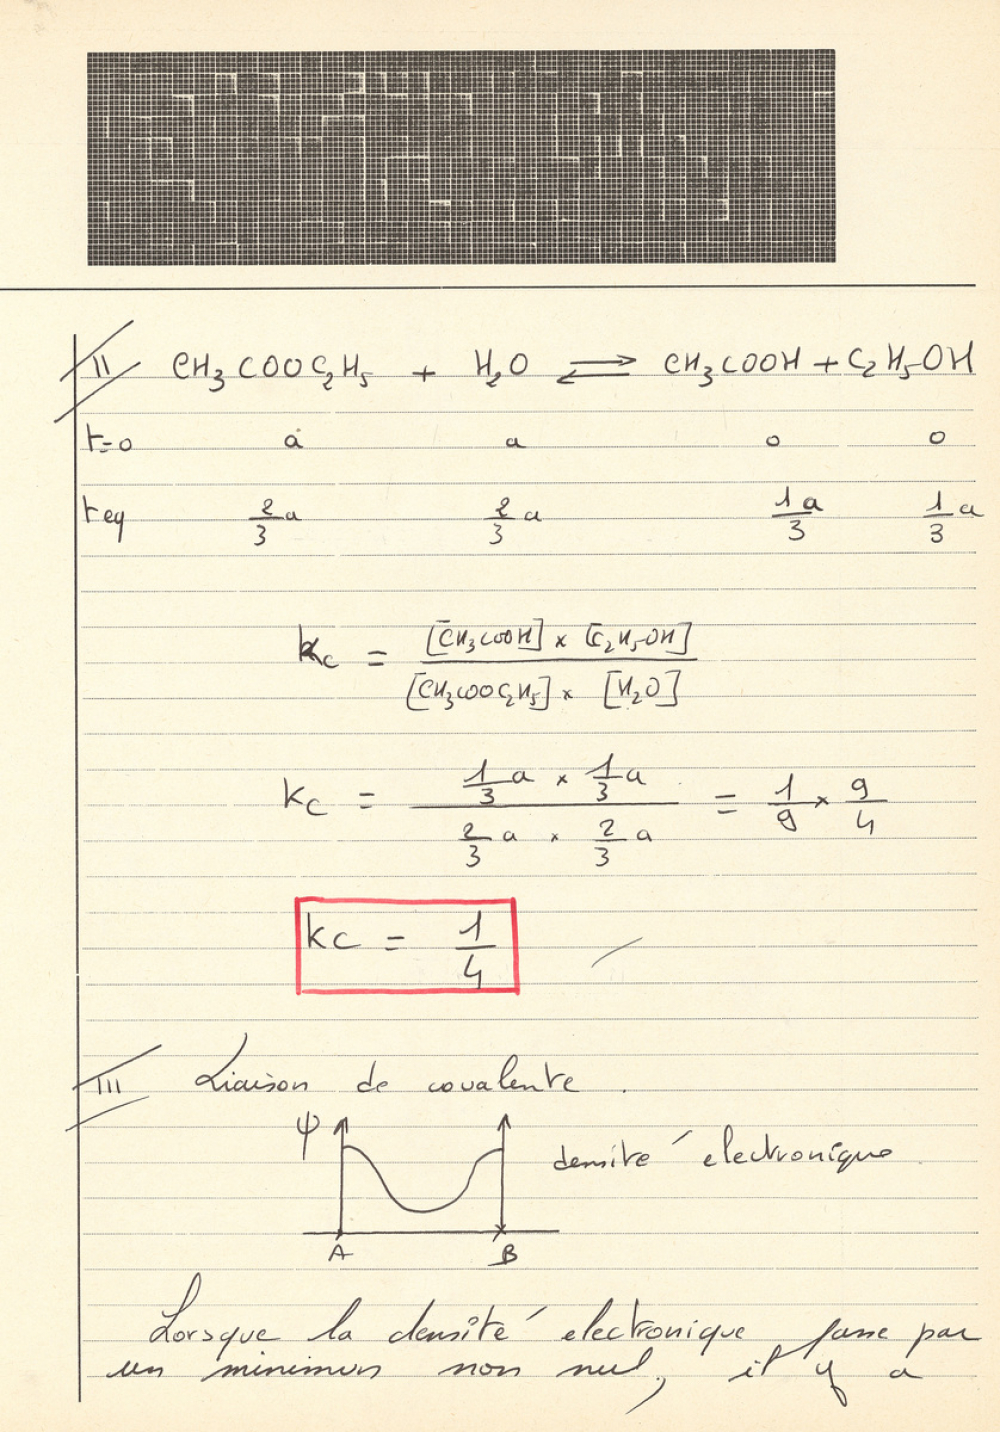 II CH₃COOC₂H₅ + H₂O ⇌ CH₃COOH + C₂H₅OH
t=0 a a 0 0
t eq 2/3 a 2/3 a 1/3 a 1/3 a
Kc = [CH₃COOH] × [C₂H₅OH] / [CH₃COOC₂H₅] × [H₂O]
Kc = 1/3 a × 1/3 a / 2/3 a × 2/3 a = 1/9 × 9/4
Kc = 1/4
III Liaison de covalente.
ψ densité électronique
A B
Lorsque la densité électronique passe par
un minimun non nul, il y a